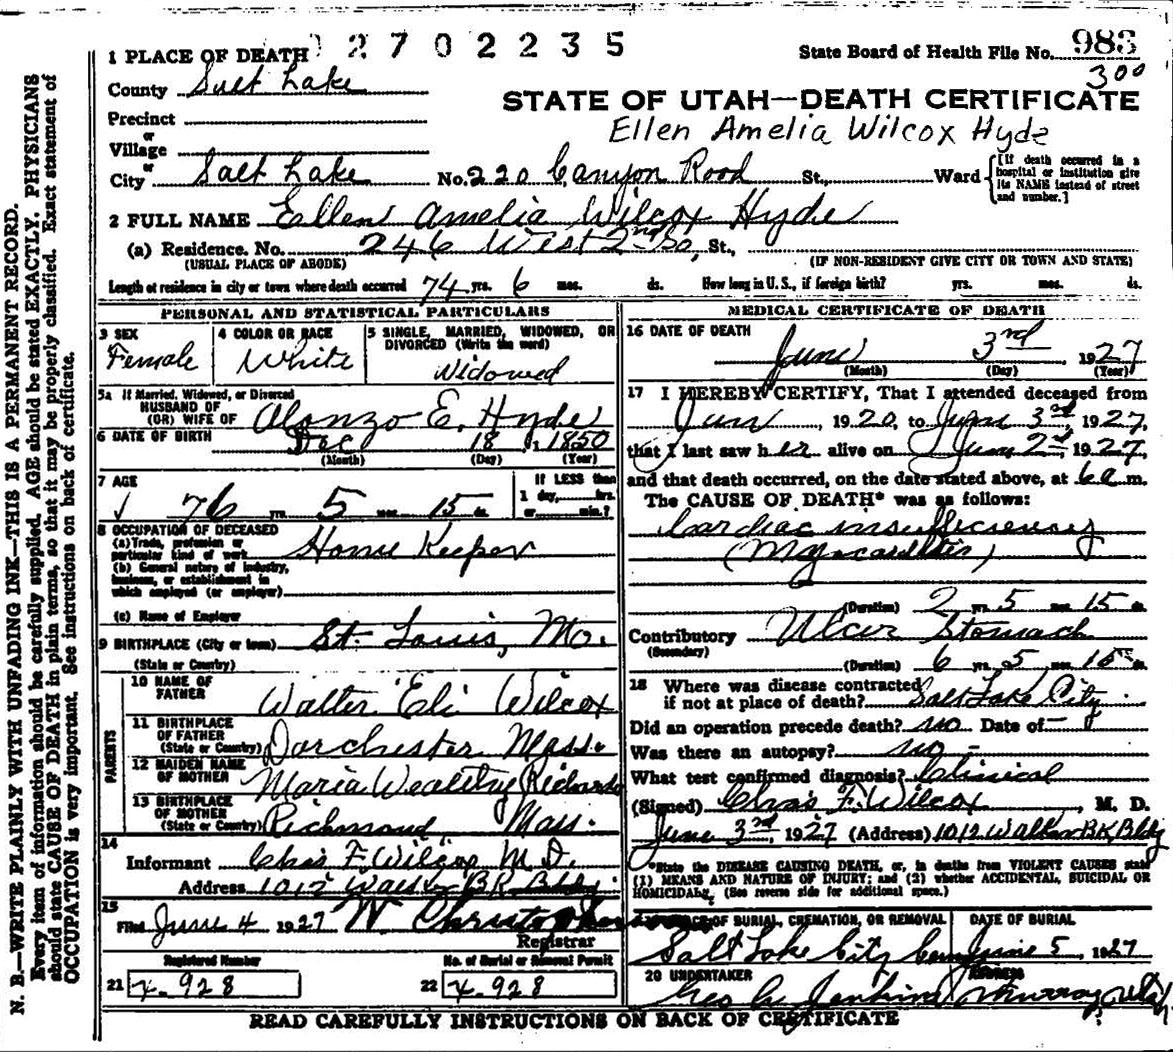 N. B.—WRITE PLAINLY WITH UNFADING INK—THIS IS A PERMANENT RECORD.
Every item of information should be carefully supplied. AGE should be stated EXACTLY. PHYSICIANS
should state CAUSE OF DEATH in plain terms, so that it may be properly classified. Exact statement of
OCCUPATION is very important. See instructions on back of certificate.
2702235
State Board of Health File No. 983
300
1 PLACE OF DEATH
County Salt Lake
STATE OF UTAH—DEATH CERTIFICATE
Precinct
Ellen Amelia Wilcox Hyde
or
Village
or
City Salt Lake No. 220 Canyon Road St., Ward [If death occurred in a hospital or institution give its NAME instead of street and number.]
2 FULL NAME Ellen Amelia Wilcox Hyde
(a) Residence. No. 246 West 2nd So, St.,
(USUAL PLACE OF ABODE) (IF NON-RESIDENT GIVE CITY OR TOWN AND STATE)
Length of residence in city or town where death occurred 74 yrs. 6 mos. ds. How long in U. S., if foreign birth? yrs. mos. ds.
PERSONAL AND STATISTICAL PARTICULARS
3 SEX
Female
4 COLOR OR RACE
White
5 SINGLE, MARRIED, WIDOWED, OR DIVORCED (Write the word)
Widowed
5a If Married, Widowed, or Divorced
HUSBAND OF
(OR) WIFE OF Alonzo E. Hyde
6 DATE OF BIRTH Dec 18, 1850
(Month) (Day) (Year)
7 AGE
76 yrs. 5 mos. 15 ds.
If LESS than
1 day, hrs.
or min.?
8 OCCUPATION OF DECEASED
(a) Trade, profession or
particular kind of work Home Keeper
(b) General nature of industry,
business, or establishment in
which employed (or employer)
(c) Name of Employer
9 BIRTHPLACE (City or town) St. Louis, Mo.
(State or Country)
PARENTS
10 NAME OF
FATHER Walter Eli Wilcox
11 BIRTHPLACE
OF FATHER
(State or Country) Dorchester Mass.
12 MAIDEN NAME
OF MOTHER Maria Wealthy Richards
13 BIRTHPLACE
OF MOTHER
(State or Country) Richmond, Mass.
14
Informant Chas F. Wilcox M. D.
Address 1012 Walker BK Bldg
15
Filed June 4 1927 W. Christo
Registrar
Registered Number
21 X-928
No. of Burial or Removal Permit
22 X-928
MEDICAL CERTIFICATE OF DEATH
16 DATE OF DEATH
June 3rd 1927
(Month) (Day) (Year)
17 I HEREBY CERTIFY, That I attended deceased from
Jun, 1920, to June 3rd, 1927,
that I last saw her alive on June 2nd 1927,
and that death occurred, on the date stated above, at 6 a m.
The CAUSE OF DEATH* was as follows:
Cardiac insufficiency
(Myocarditis)
(Duration) 2 yrs. 5 mos. 15 ds.
Contributory Ulcer Stomach
(Secondary)
(Duration) 6 yrs. 5 mos. 15 ds.
18 Where was disease contracted
if not at place of death? Salt Lake City
Did an operation precede death? no Date of -
Was there an autopsy? no -
What test confirmed diagnosis? Clinical
(Signed) Chas F. Wilcox, M. D.
June 3rd, 1927 (Address) 1012 Walker BK Bldg
*State the DISEASE CAUSING DEATH, or, in deaths from VIOLENT CAUSES state
(1) MEANS AND NATURE OF INJURY; and (2) whether ACCIDENTAL, SUICIDAL OR
HOMICIDAL. (See reverse side for additional space.)
OF BURIAL, CREMATION, OR REMOVAL
Salt Lake City Cem
DATE OF BURIAL
June 5 1927
20 UNDERTAKER
Geo C. Jenkins
ADDRESS
Murray, Utah
READ CAREFULLY INSTRUCTIONS ON BACK OF CERTIFICATE